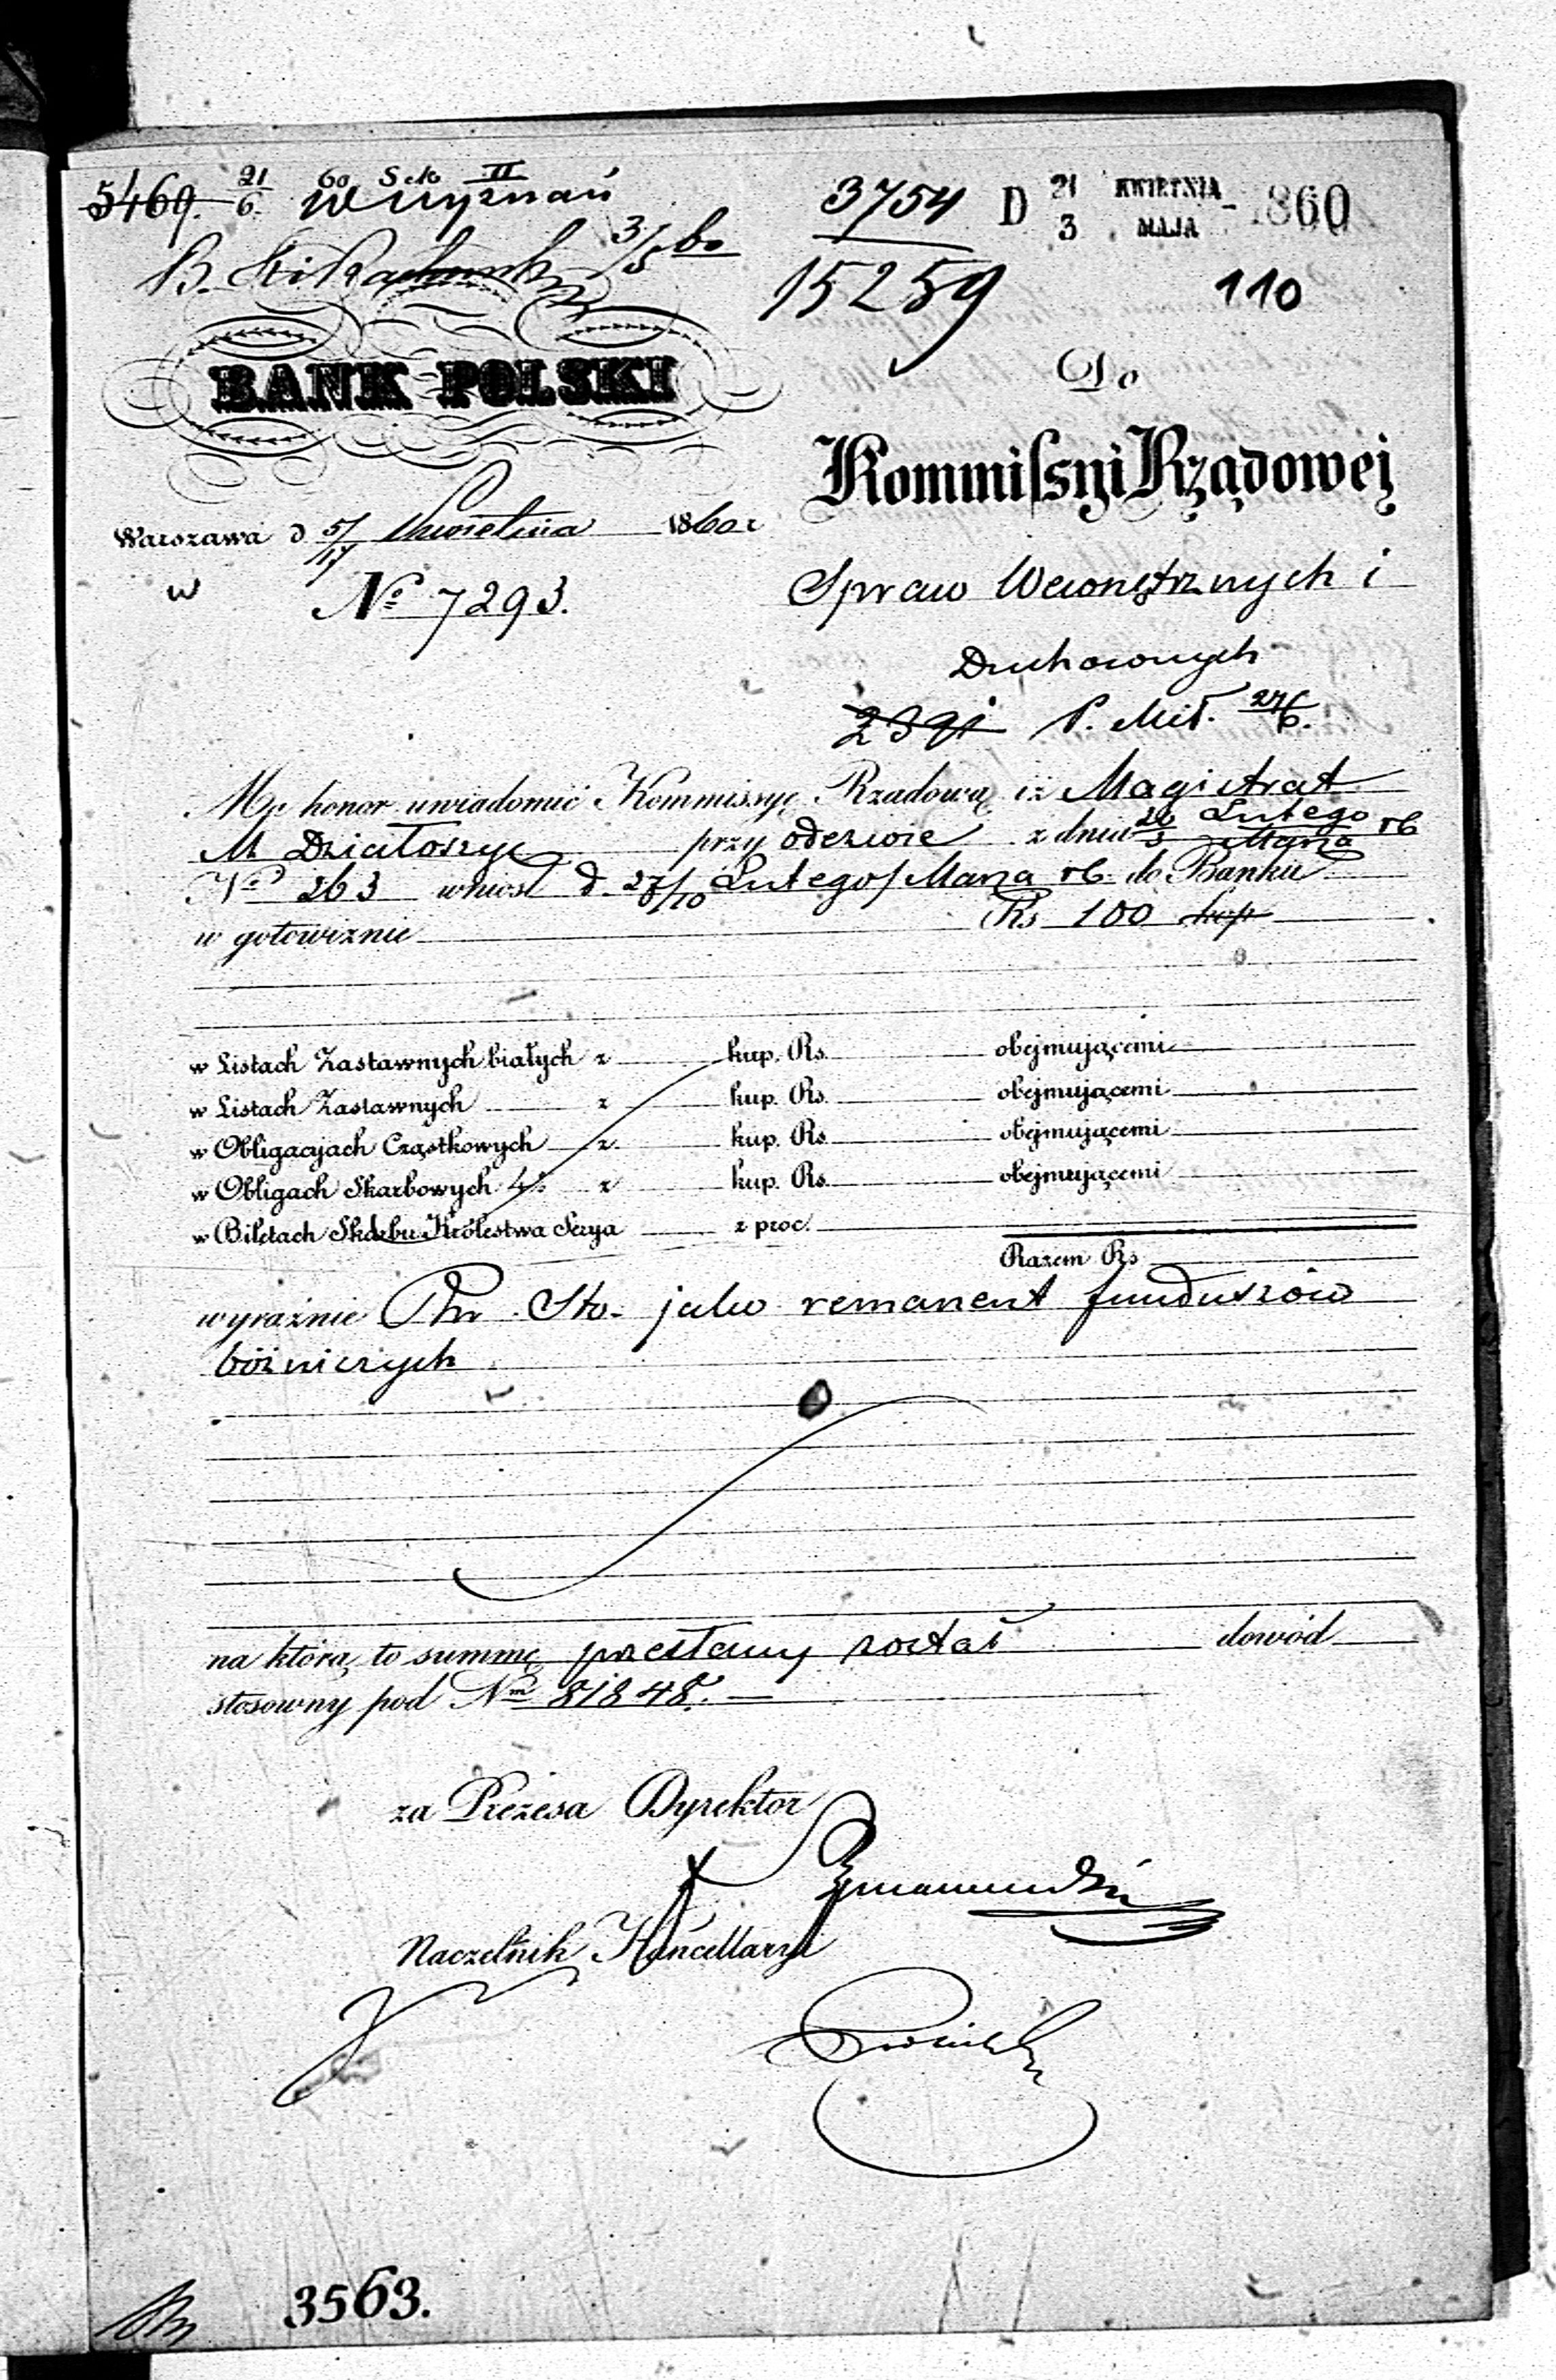 5469. 21/6. 60 Sek II
W Wyznań
3754 D 21/3 KWIETNIA/MAJA 1860
3/5 60
15259 110
BANK POLSKI
Do
Kommissyi Rządowej
Warszawa d 5/17 Kwietnia 1860 r
w
№ 7293.
Spraw Wewnętrznych i
Duchownych
2391 P. Mił. 27/6.
Ma honor uwiadomić Kommissyę Rządową iż Magistrat
M Działoszyc przy odezwie z dnia 26 Lutego / Marca rb
№ 263 wniosł d. 27/10 Lutego/Marca rb. do Banku
w gotowiznie Rs 100 kop
w Listach Zastawnych białych z kup. Rs. obejmującemi
w Listach Zastawnych z kup. Rs. obejmującemi
w Obligacyjach Cząstkowych z kup. Rs. obejmującemi
w Obligach Skarbowych 4% z kup. Rs. obejmującemi
w Biletach Skarbu Królestwa Serya z proc.
Razem Rs
wyraźnie Rsr Sto. jako remanent funduszów
bóżniczych
na którą to summę przesłany został dowód
stosowny pod № 81848.
za Prezesa Dyrektor
Naczelnik Kancellaryi
3563.